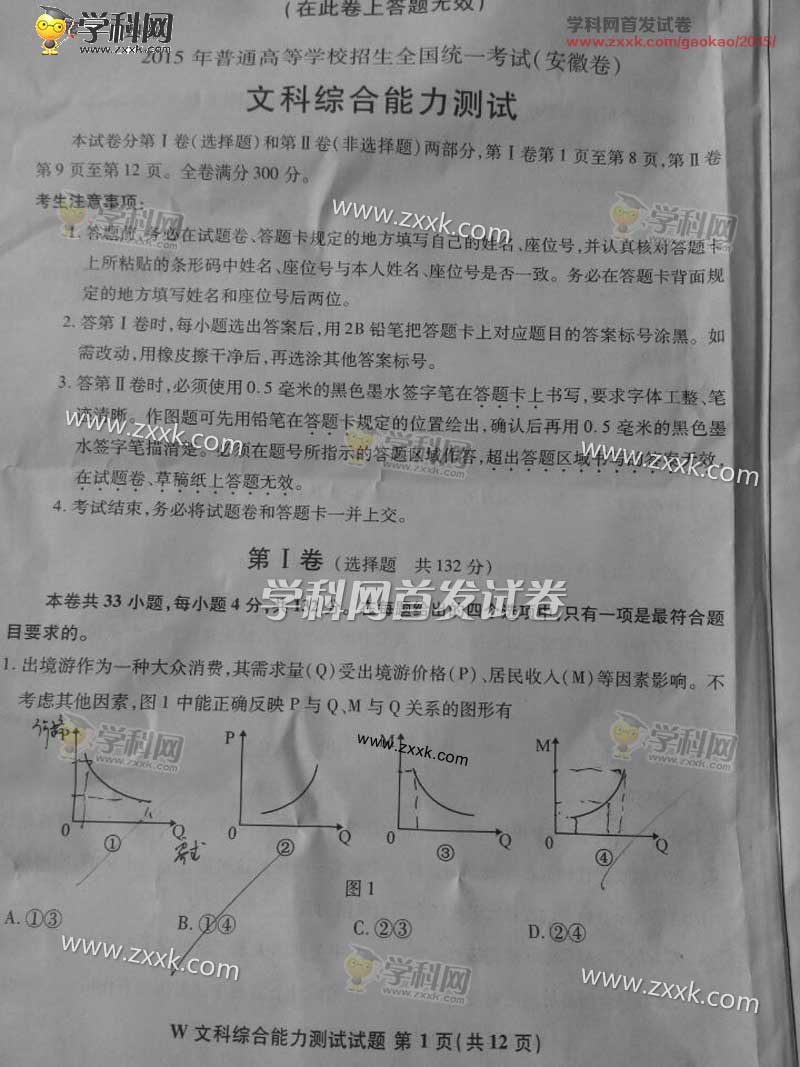 (在此卷上答题无效)
学科网
学科网首发试卷
www.zxxk.com/gaokao/2015/
2015年普通高等学校招生全国统一考试(安徽卷)
文科综合能力测试
本试卷分第Ⅰ卷(选择题)和第Ⅱ卷(非选择题)两部分,第Ⅰ卷第1页至第8页,第Ⅱ卷
第9页至第12页。全卷满分300分。
考生注意事项:
学科网
www.zxxk.com
学科网
zxxk.com
1. 答题前,务必在试题卷、答题卡规定的地方填写自己的姓名、座位号,并认真核对答题卡
上所粘贴的条形码中姓名、座位号与本人姓名、座位号是否一致。务必在答题卡背面规
定的地方填写姓名和座位号后两位。
2. 答第Ⅰ卷时,每小题选出答案后,用2B铅笔把答题卡上对应题目的答案标号涂黑。如
需改动,用橡皮擦干净后,再选涂其他答案标号。
3. 答第Ⅱ卷时,必须使用0.5毫米的黑色墨水签字笔在答题卡上书写,要求字体工整、笔
迹清晰。作图题可先用铅笔在答题卡规定的位置绘出,确认后再用0.5毫米的黑色墨
水签字笔描清楚。必须在题号所指示的答题区域作答,超出答题区域书写的答案无效,
在试题卷、草稿纸上答题无效。
www.zxxk.com
学科网
zxxk.com
www.zxxk.com
4. 考试结束,务必将试题卷和答题卡一并上交。
第Ⅰ卷(选择题 共132分)
学科网 首发试卷
本卷共33小题,每小题4分,共132分。在每题给出的四个选项中,只有一项是最符合题
目要求的。
1. 出境游作为一种大众消费,其需求量(Q)受出境游价格(P)、居民收入(M)等因素影响。不
考虑其他因素,图1中能正确反映P与Q、M与Q关系的图形有
学科网
zxxk.com
www.zxxk.com
学科网
zxxk.com
P P M M
0 Q 0 Q 0 Q 0 Q
① ② ③ ④
图1
A. ①③ B. ①④ C. ②③ D. ②④
www.zxxk.com
学科网
zxxk.com
www.zxxk.com
W 文科综合能力测试试题 第1页(共12页)